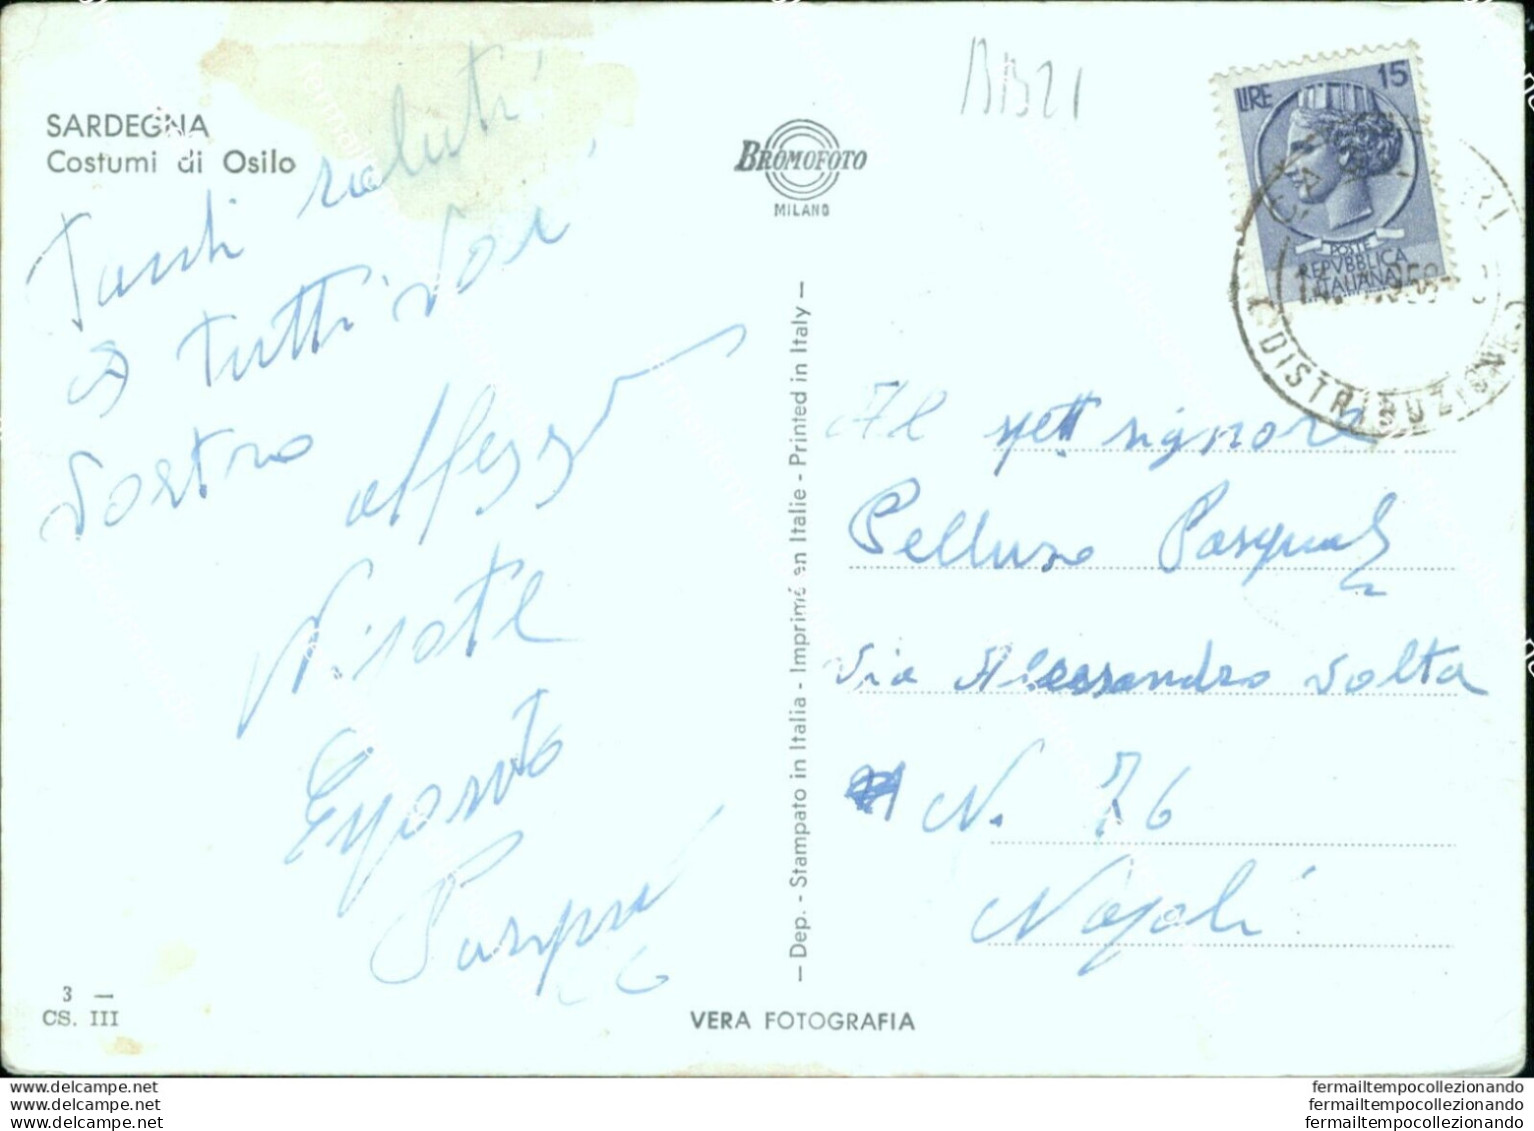 SARDEGNA
Costumi di Osilo
Tanti saluti
a tutti Voi
Vostro
Nipote
Esposito
BROMOFOTO
MILANO
BB21
LIRE 15
POSTE
REPVBBLICA
ITALIANA
DISTRIBUZIONE
— Dep. - Stampato in Italia - Imprimé en Italie - Printed in Italy —
Al gett signora
Pelluso Pasquale
Via Alessandro Volta
N. 76
Napoli
3 —
CS. III
VERA FOTOGRAFIA
www.delcampe.net
www.delcampe.net
www.delcampe.net
fermailtempocollezionando
fermailtempocollezionando
fermailtempocollezionando